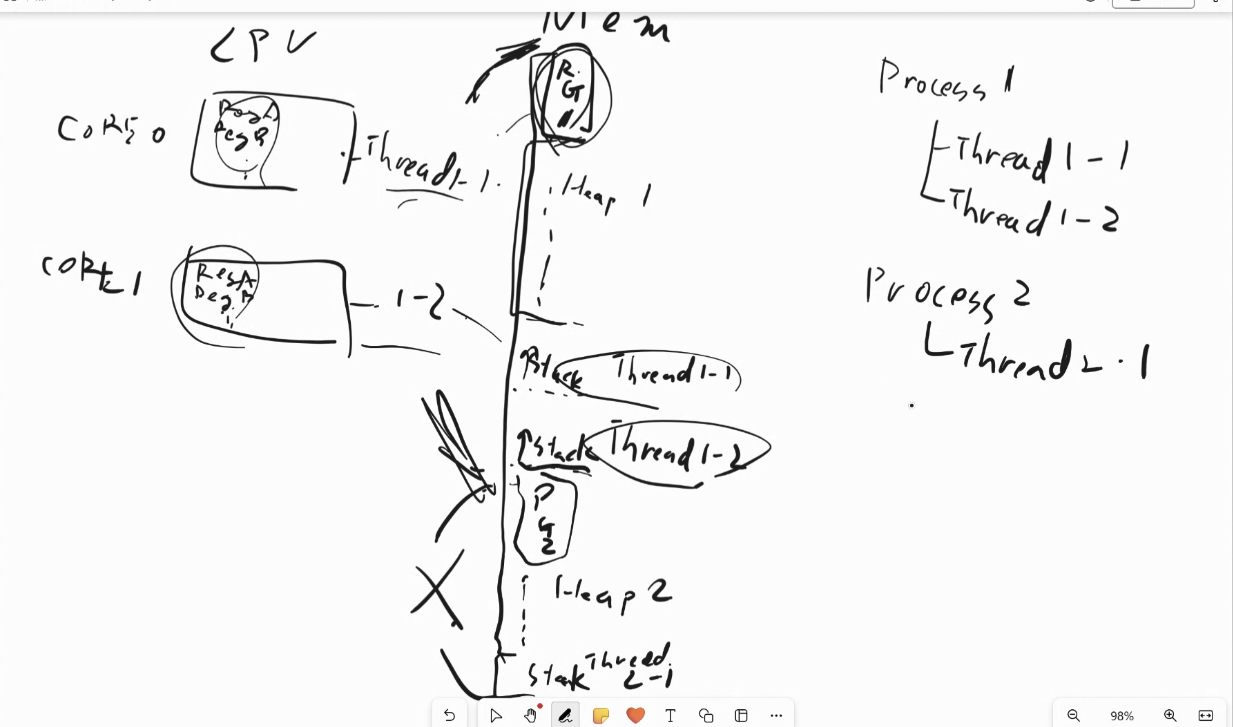 CPU
Mem
CORE 0
Reg A
Reg B
Thread 1-1
CORE 1
Reg A
Reg B
1-2
Heap 1
Stack Thread 1-1
Stack Thread 1-2
P
G
2
Heap 2
Stack Thread 2-1
Process 1
Thread 1-1
Thread 1-2
Process 2
Thread 2-1
T
98%